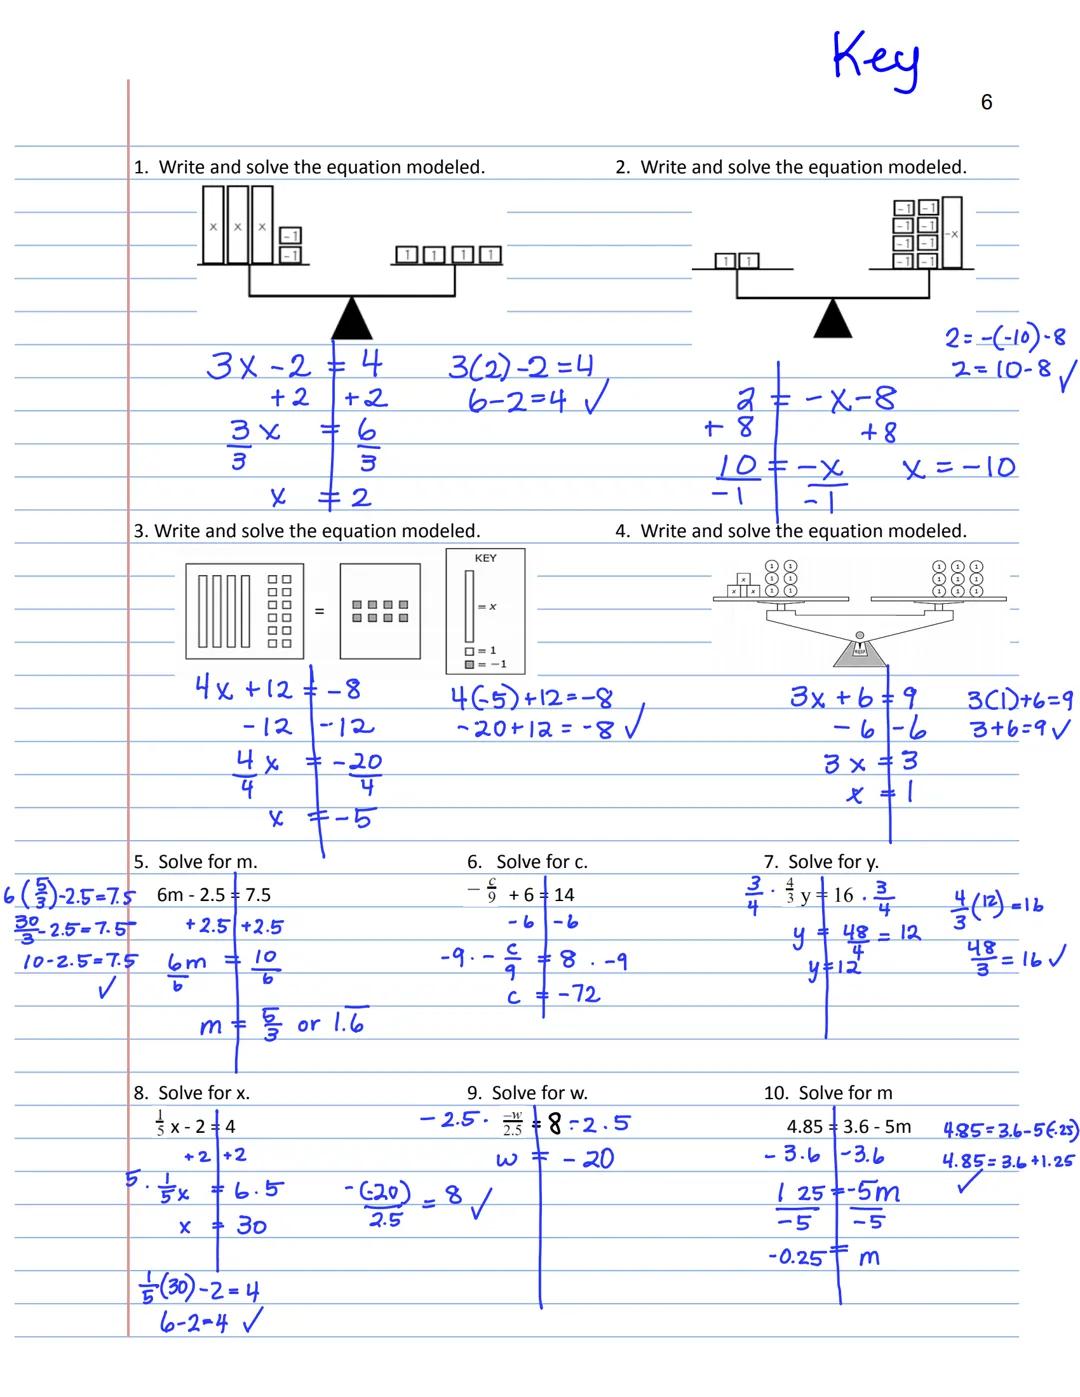 Key
6
1. Write and solve the equation modeled.
x x x -1
-1
1 1 1 1
3x - 2 = 4
+2 +2
3x = 6
3 3
x = 2
3(2)-2=4
6-2=4 ✓
2. Write and solve the equation modeled.
1 1
-1 -1
-1 -1
-1 -1
-1 -1
-x
2=-(-10)-8
2=10-8 ✓
2 = -x-8
+8 +8
10 = -x
-1 -1
x = -10
3. Write and solve the equation modeled.
=
KEY
= x
= 1
= -1
4x +12 = -8
-12 -12
4x = -20
4 4
x = -5
4(-5)+12=-8
-20+12=-8 ✓
4. Write and solve the equation modeled.
x
x x x
1 1
1 1
1 1
1 1 1
1 1 1
1 1 1
3x + 6 = 9
-6 -6
3x = 3
x = 1
3(1)+6=9
3+6=9 ✓
5. Solve for m.
6m - 2.5 = 7.5
+2.5 +2.5
6m = 10
6 6
m = 5/3 or 1.6̅
6(5/3)-2.5=7.5
30/3-2.5=7.5
10-2.5=7.5
✓
6. Solve for c.
- c/9 + 6 = 14
-6 -6
-9 · - c/9 = 8 · -9
c = -72
7. Solve for y.
3/4 · 4/3 y = 16 · 3/4
y = 48/4 = 12
y=12
4/3(12)=16
48/3=16 ✓
8. Solve for x.
1/5 x - 2 = 4
+2 +2
5 · 1/5x = 6·5
x = 30
1/5(30)-2=4
6-2=4 ✓
9. Solve for w.
-2.5 · -w/2.5 = 8·-2.5
w = -20
-(-20)/2.5 = 8 ✓
10. Solve for m
4.85 = 3.6 - 5m
-3.6 -3.6
1 25 = -5m
-5 -5
-0.25 = m
4.85=3.6-5(-.25)
4.85=3.6+1.25
✓